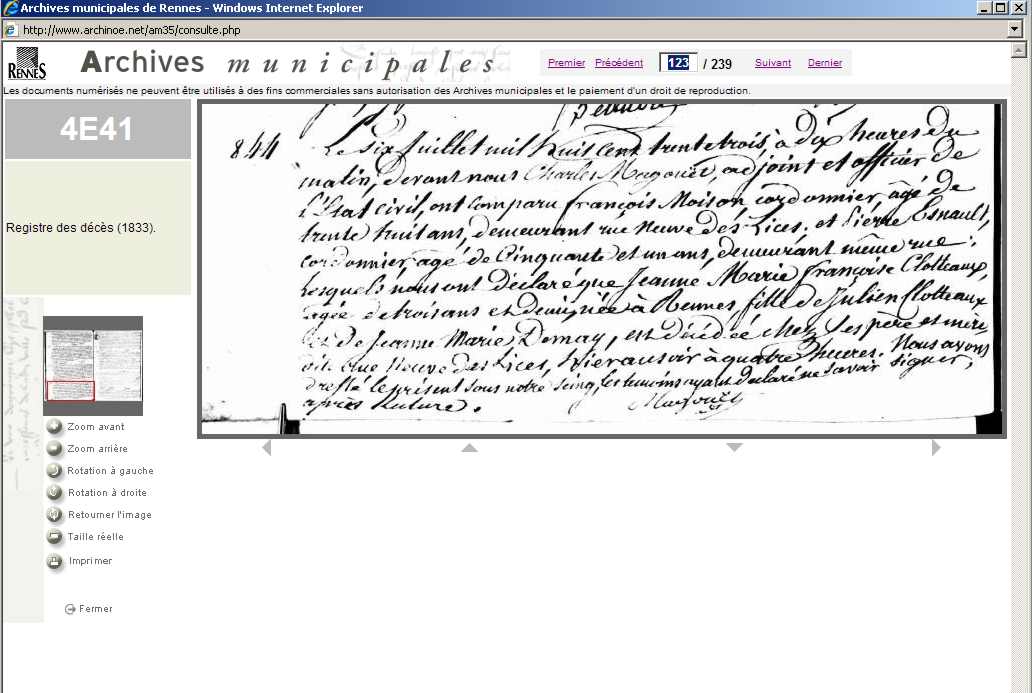 Archives municipales de Rennes - Windows Internet Explorer
http://www.archinoe.net/am35/consulte.php
RENNES
Archives municipales
Premier Précédent 123 / 239 Suivant Dernier
Les documents numérisés ne peuvent être utilisés à des fins commerciales sans autorisation des Archives municipales et le paiement d'un droit de reproduction.
4E41
Registre des décès (1833).
844 Le six juillet mil huit cent trente trois, à dix heures du
matin, devant nous Charles Magouët, adjoint et officier de
l'Etat civil, ont comparu françois Moison cordonnier, âgé de
trente huit ans, demeurant rue Neuve des Lices, et Pierre Esnault,
cordonnier agé de Cinquante et un ans, demeurant même rue;
Lesquels nous ont déclaré que Jeanne Marie françoise Clotteaux,
agée de trois ans et demi, née à Rennes, fille de Julien Clotteaux
et de Jeanne Marie Demay, est décédée chez ses père et mère
dite rue Neuve des Lices, hier au soir à quatre heures. Nous avons
dressé le présent sous notre seing, les témoins ayant déclaré ne savoir signer,
après lecture.
Magouët
Zoom avant
Zoom arrière
Rotation à gauche
Rotation à droite
Retourner l'image
Taille réelle
Imprimer
Fermer